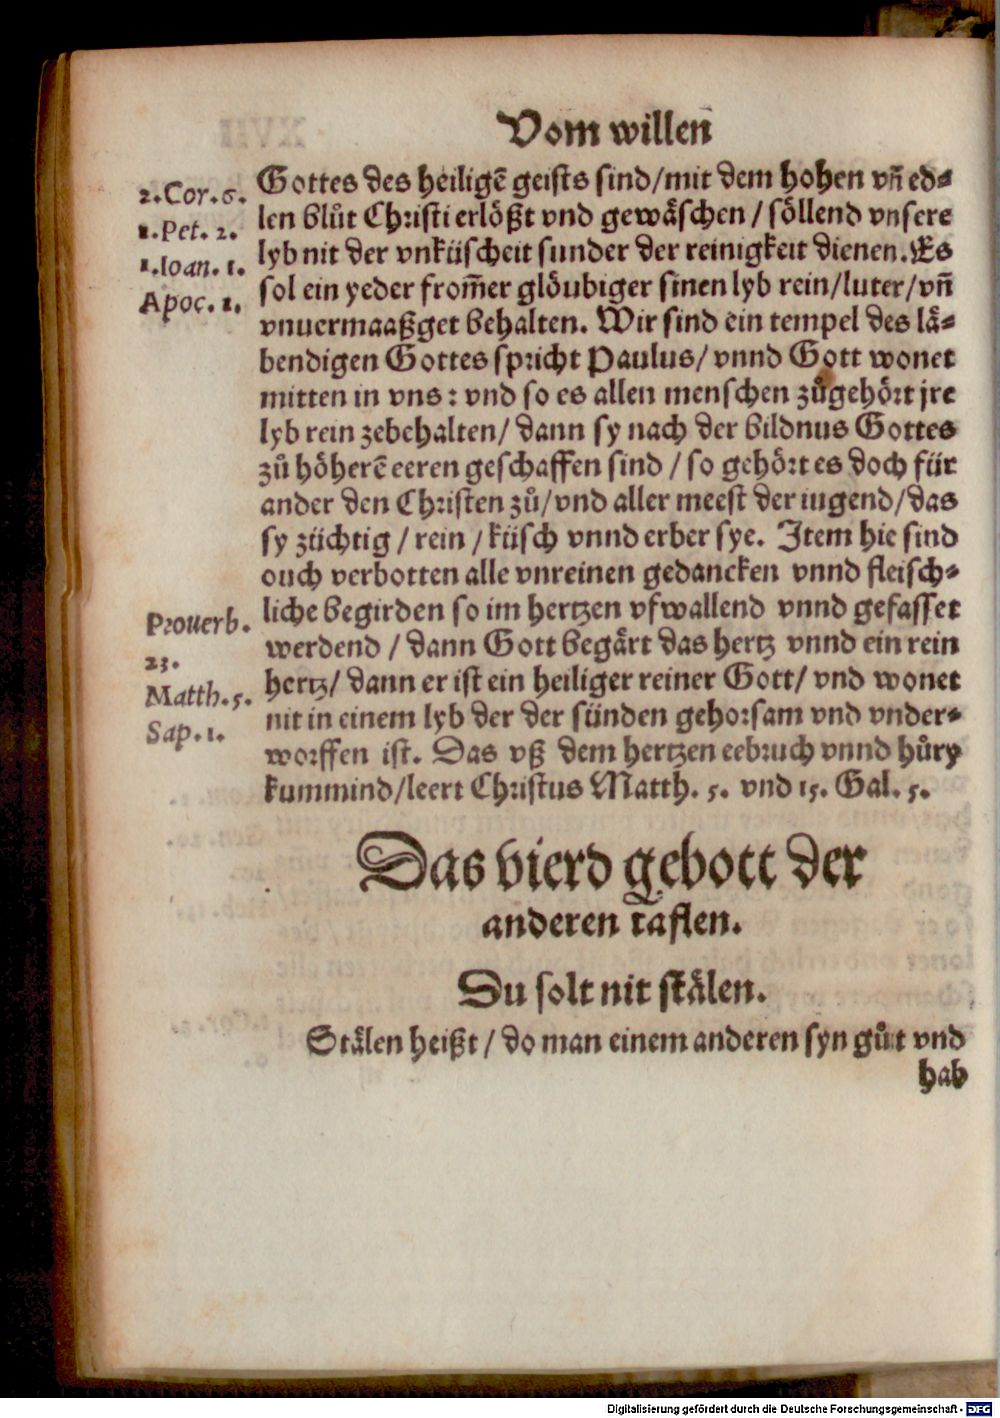 Vom willen
2.Cor.6.
1.Pet. 2.
1.Ioan. 1.
Apoc. 1.
Gottes des heiligẽ geists sind/mit dem hohen vñ ed⸗
len blůt Christi erlößt vnd gewäschen / söllend vnsere
lyb nit der vnküscheit sunder der reinigkeit dienen. Es
sol ein yeder from̃er glöubiger sinen lyb rein/luter/vñ
vnuermaaßget behalten. Wir sind ein tempel des lä⸗
bendigen Gottes spricht Paulus/ vnnd Gott wonet
mitten in vns : vnd so es allen menschen zůgehört jre
lyb rein zebehalten/ dann sy nach der bildnus Gottes
zů höherẽ eeren geschaffen sind / so gehört es doch für
ander den Christen zů/vnd aller meest der iugend/das
sy züchtig / rein / küsch vnnd erber sye. Item hie sind
ouch verbotten alle vnreinen gedancken vnnd fleisch⸗
Prouerb.
23.
Matth.5.
Sap.1.
liche begirden so im hertzen vfwallend vnnd gefasset
werdend / dann Gott begärt das hertz vnnd ein rein
hertz/ dann er ist ein heiliger reiner Gott/ vnd wonet
nit in einem lyb der der sünden gehorsam vnd vnder⸗
worffen ist. Das vß dem hertzen eebruch vnnd hůry
kummind/leert Christus Matth. 5. vnd 15. Gal. 5.
Das vierd gebott der
anderen taflen.
Du solt nit stälen.
Stälen heißt / do man einem anderen syn gůt vnd
hab
Digitalisierung gefördert durch die Deutsche Forschungsgemeinschaft - DFG